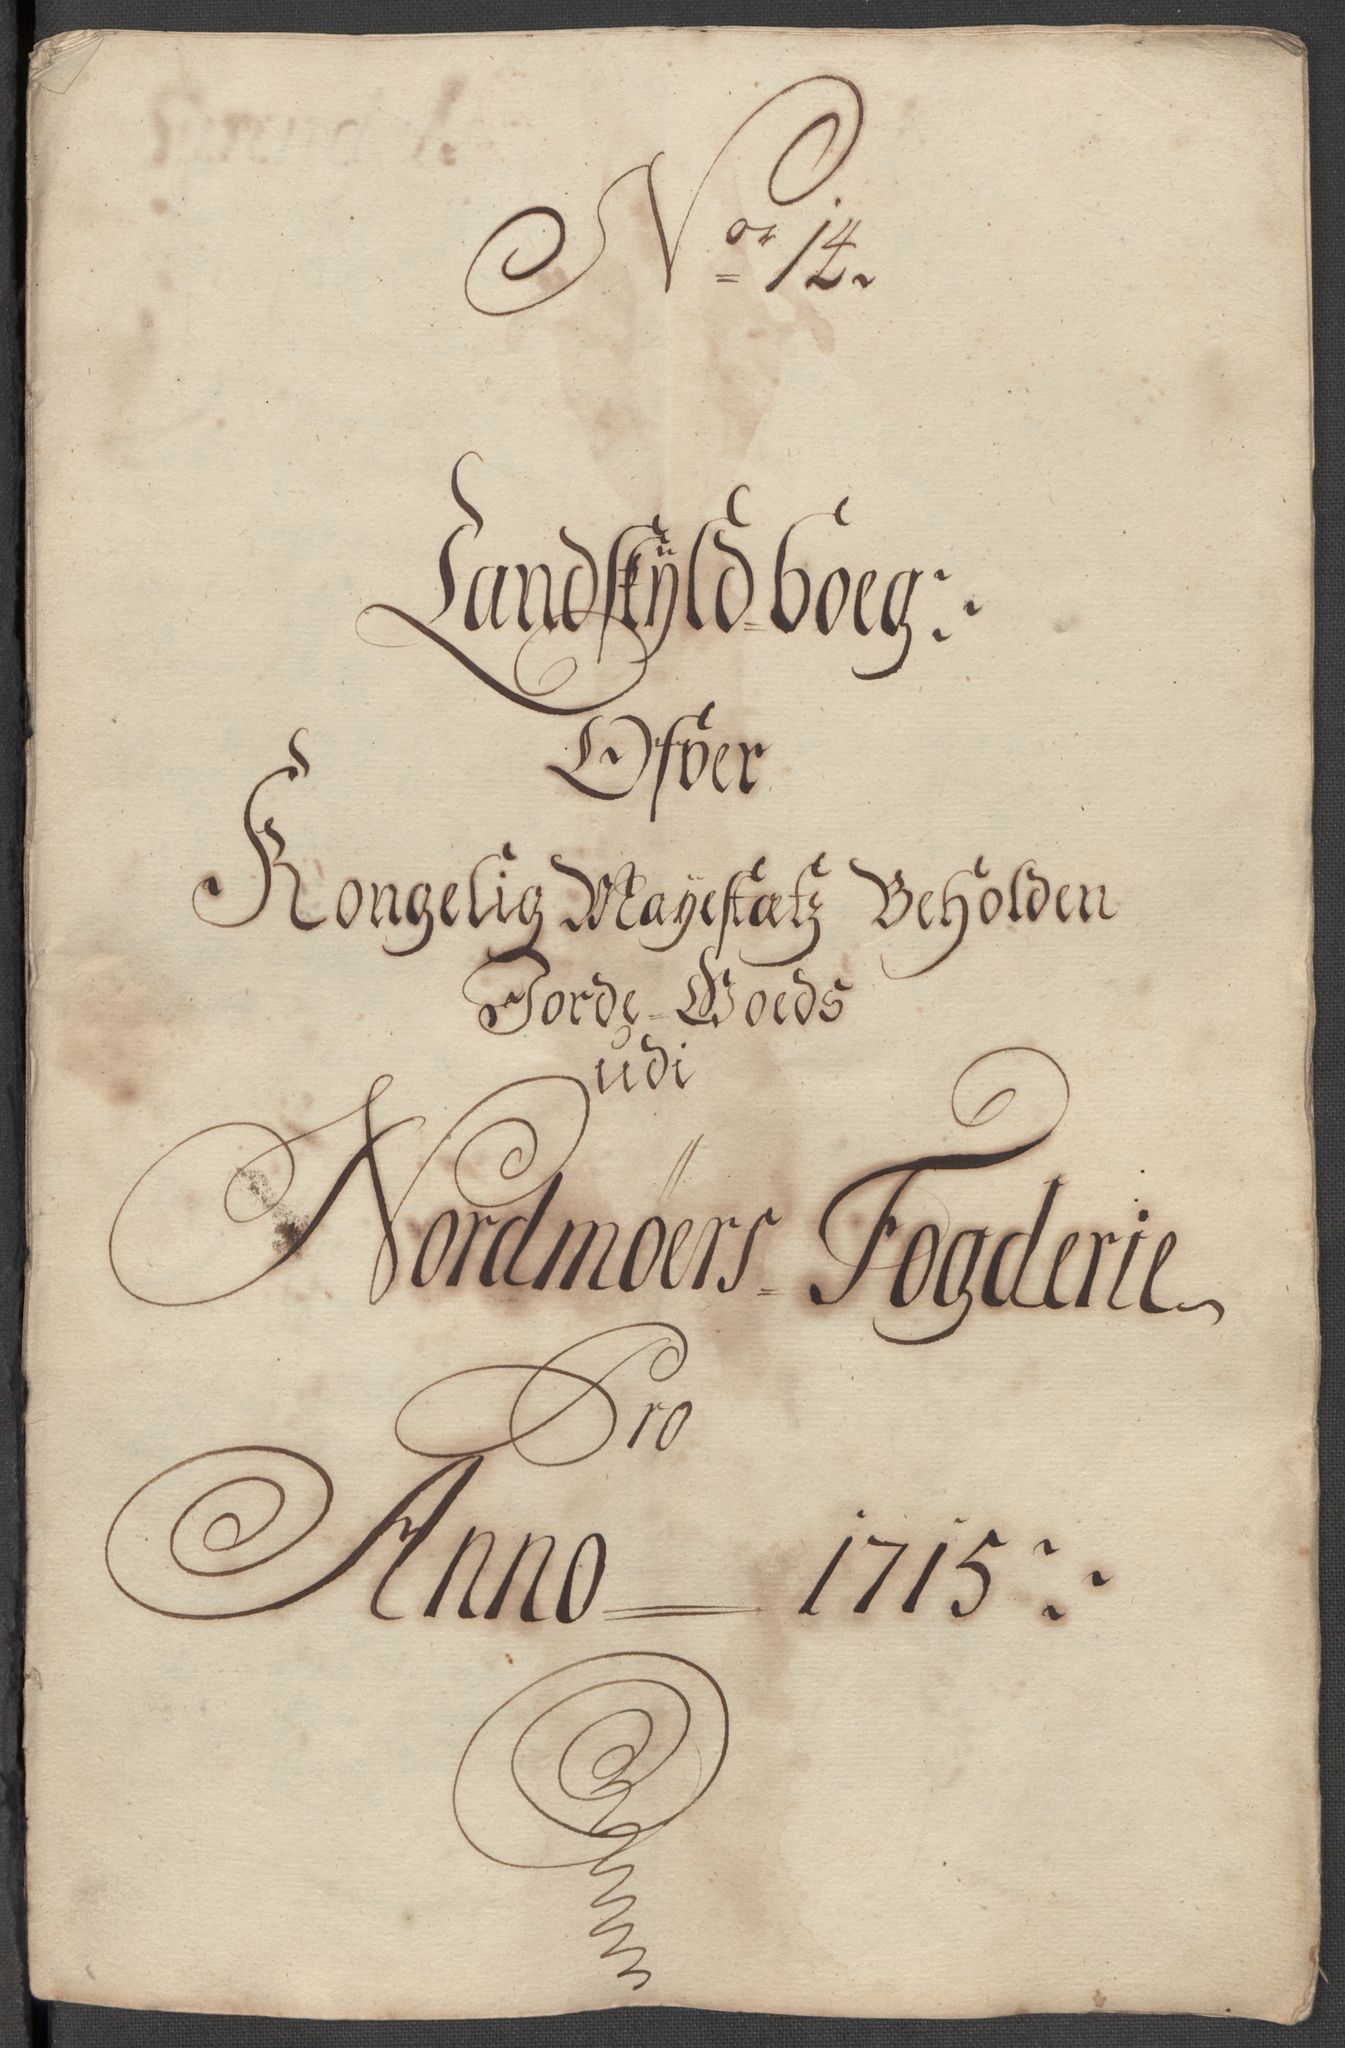 Nor 14.
Landskÿld-boeg:
Ofver
Kongelig Mayestætz Beholden
Jorde-Goeds
udi
Nordmøers-Fogderie
Pro
Anno 1715: